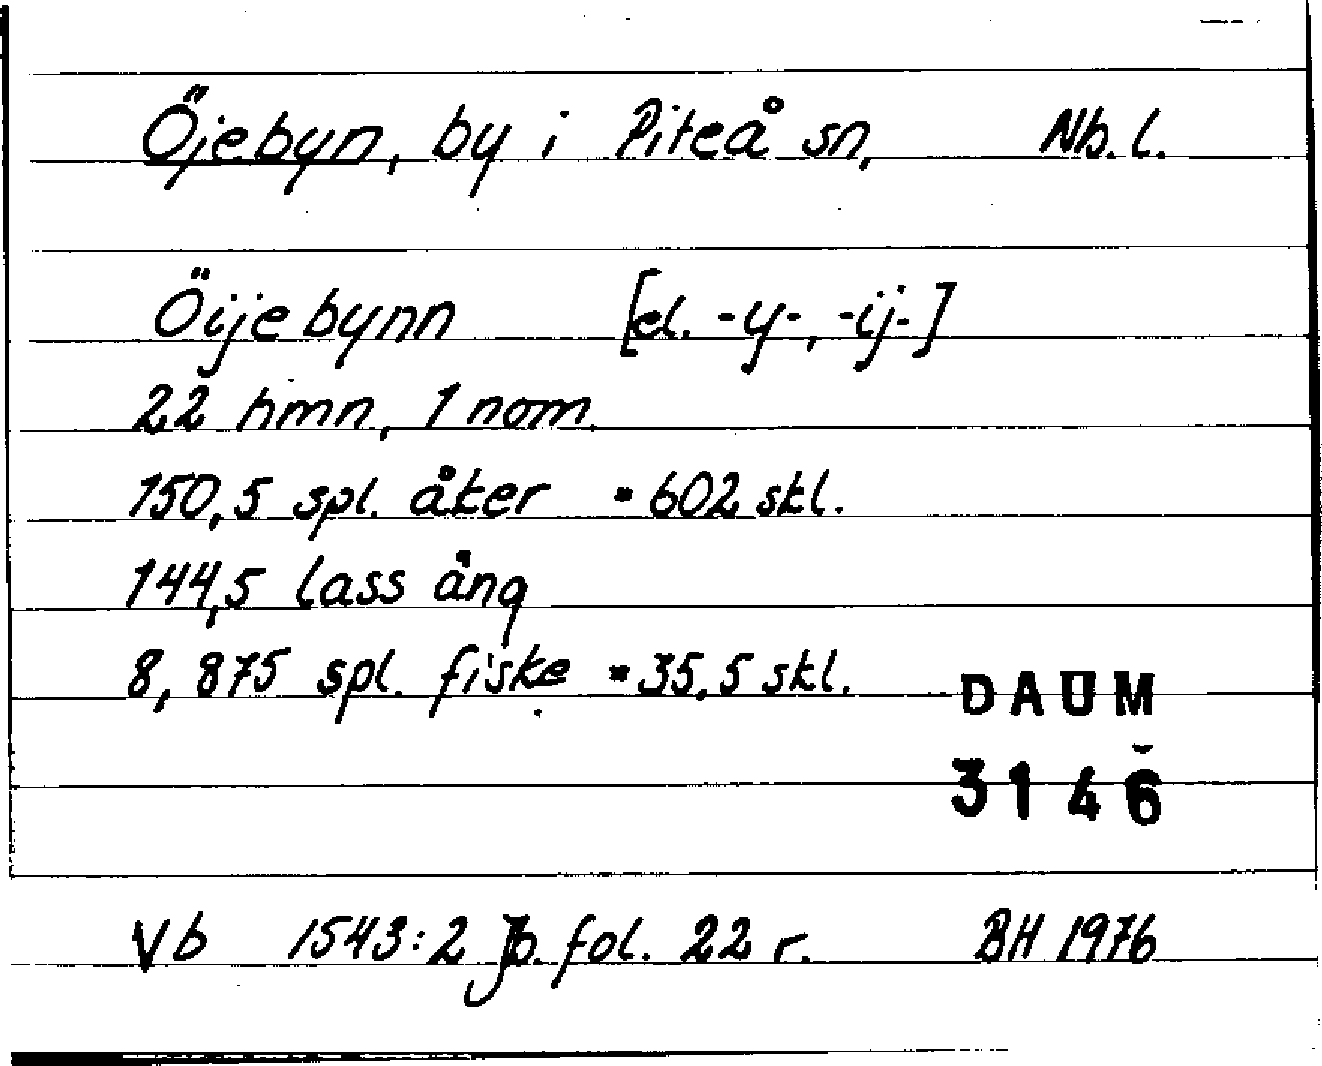 Öjebyn, by i Piteå sn, Nb. l.
Öijebynn [el. -y-, -ij-]
22 hmn, 1 nom.
150,5 spl. åker = 602 skl.
144,5 lass äng
8,875 spl. fiske = 35,5 skl.
DAUM
3146
Vb 1543:2 Jb. fol. 22 r. BH 1976